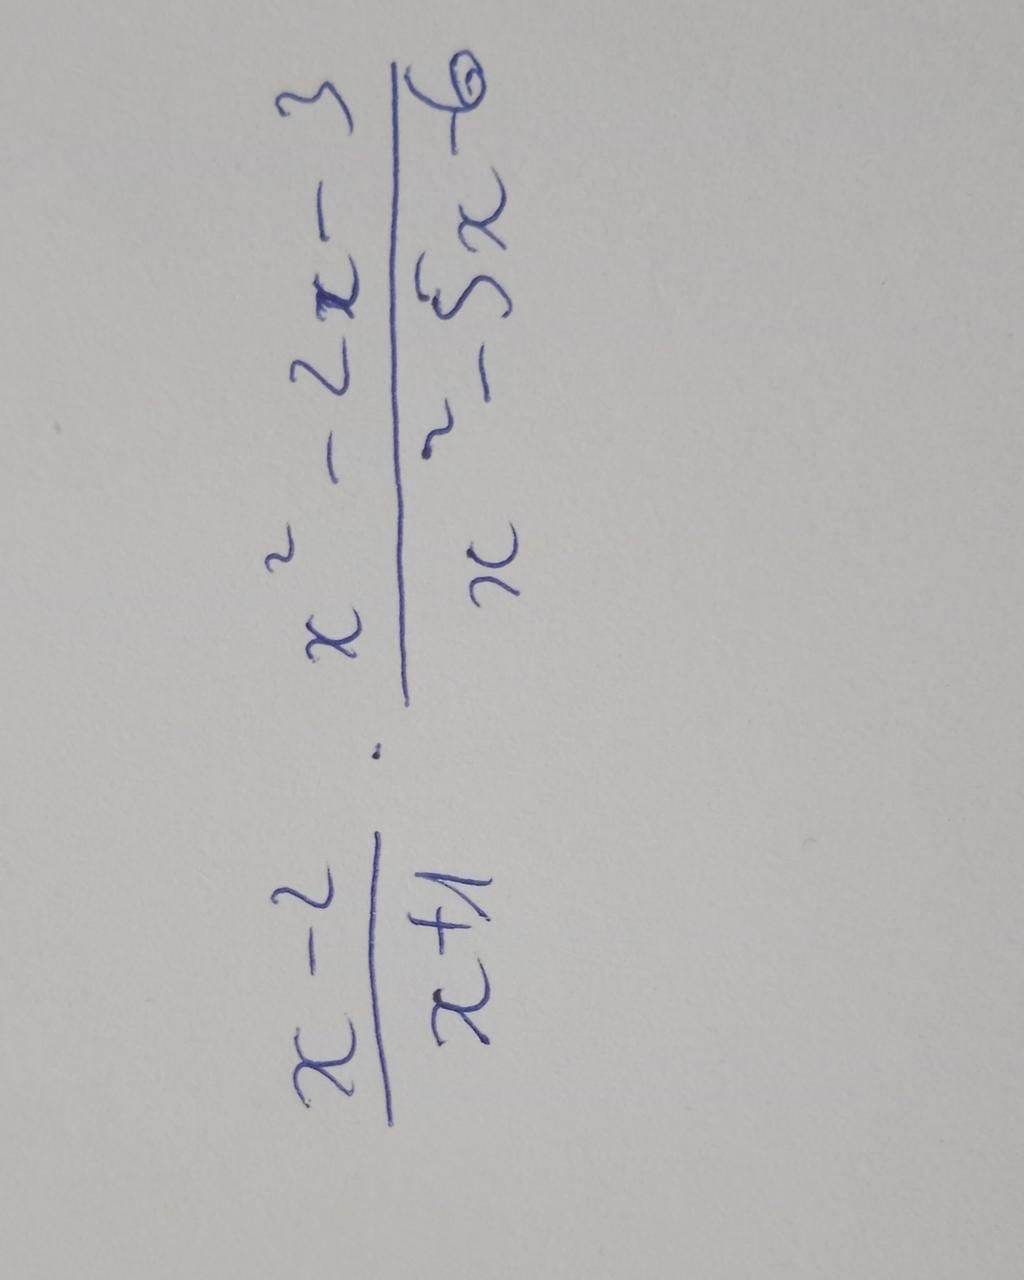 x - 2 / x + 1 · x² - 2x - 3 / x² - 5x - 6